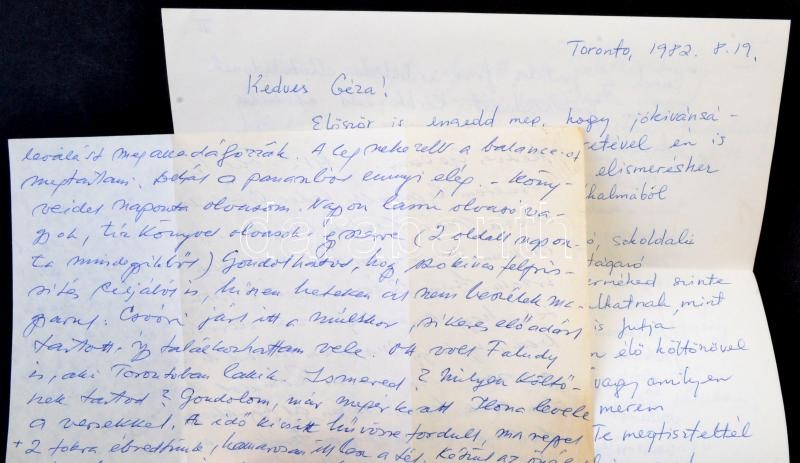 Toronto, 1982. 8.19.
Kedves Géza!
Először is engedd meg, hogy jókivánsá-
retével én is
elismerésher
kalmából
ó, sokoldalú
tágaró
terméked szinte
lhatnak, mint
is futja
n élő költőnővel
vagy amilyen
merem
Te megtisztettél
leválást megakadágozzák. A leg nehezebb a balance-ot
megtartani. a panaszból ennyi elég - köny-
veidet naponta olvasom. Nagyon lassú olvasó va-
gyok, könyvet olvasok egyszerre (2 oldalt napon-
ta mindegyikből) Gondolhatod, hogy szókincs felfris-
sítés céljából is, hiszen heteken át nem beszélek ma-
gyarul. Csoóri járt itt a multkor, sikeres előadást
tartott így találkozhattam vele. Ott volt Faludy
is, aki Torontoban lakik. Ismered? Milyen költő-
nek tartod? Gondolom, már megérkezett Ilona levele
a versekkel. Az idő kissé hűvösre fordult, ma reggel
+2 fokra ébredtünk, hamarosan itt lesz a tél.
databanth